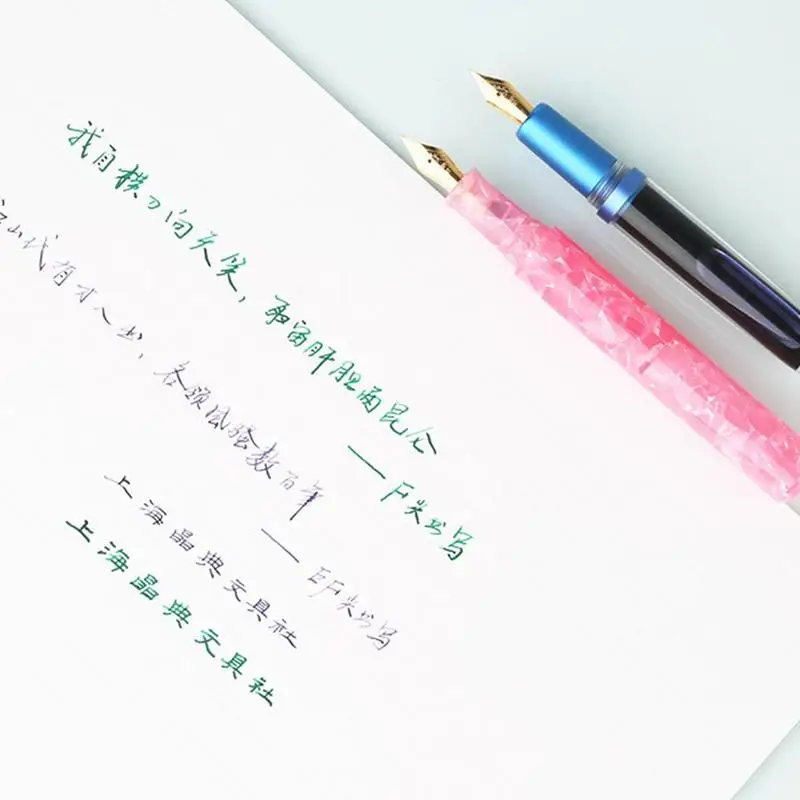 我自横刀向天笑，敢留肝胆两昆仑
——F尖书写
江山代有才人出，各领风骚数百年
——EF尖书写
上海晶典文具社
上海晶典文具社